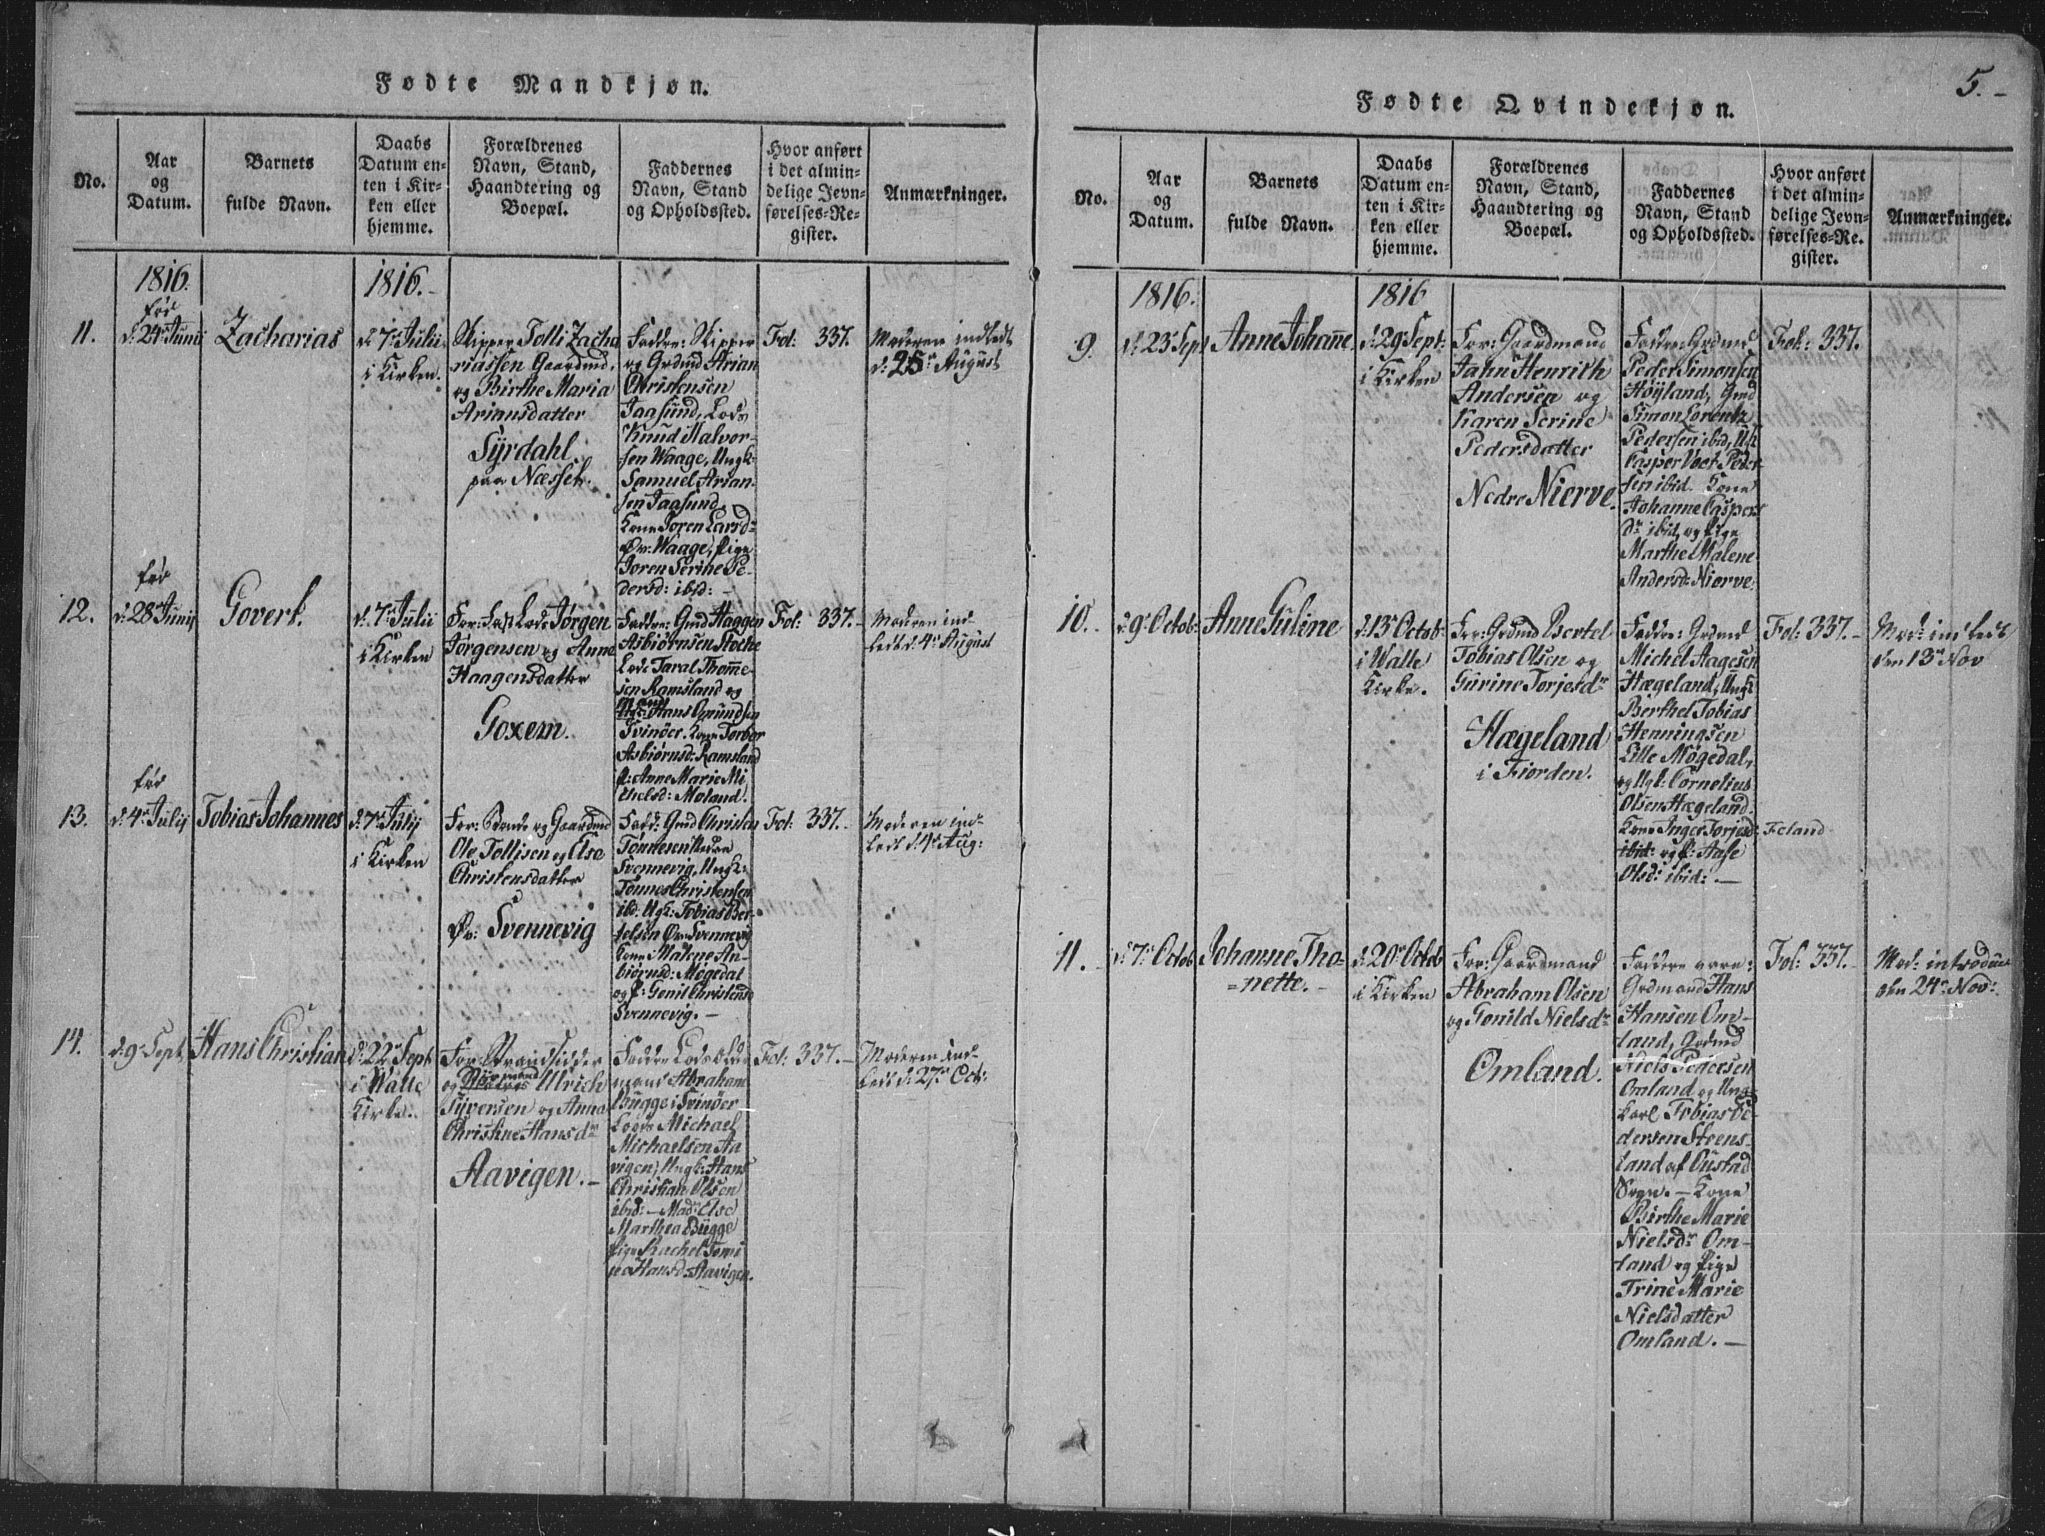 Fødte Mandkjøn.
No.
Aar
og
Datum.
Barnets
fulde Navn.
Daabs
Datum en-
ten i Kir-
ken eller
hjemme.
Forældrenes
Navn, Stand,
Haandtering og
Boepæl.
Faddernes
Navn, Stand
og Opholdssted.
Hvor anført
i det almin-
delige Jevn-
førelses-Re-
gister.
Anmærkninger.
1816.
1816.
11.
død
d: 24de Junii
Zacharias
d 7de Julii
i Kirken.
Skipper Tolli Zacha
riassen Gaardmd.
og Birthe Maria
Ariansdatter
Syrdahl
paa Næsset.
Faddre: Skipper
og Grdmd Arian
Christensen
Jaasund, Lods
Knud Halvor-
sen Waage, Ungk:
Samuel Arian-
sen Jaasund,
Kone Joren Larsd:
Øv: Waage, Pige
Joren Serine Pe-
dersd: ibid: -
Fol: 337.
Moderen indledt
d: 25de August
12.
d: 28de Junij
Govert.
d. 7de Julii
i Kirken
Jørgen
Jørgensen og Anne
Haagensdatter
Goxem.
Faddre: Gmd Haagen
Asbiørnsen Stocke
Lods Taral Thomme-
sen Ramsland og
Hans Omundsen
Svinøer. Kone Torbor
Asbiørnsd: Ramsland
P: Anne Marie Mi
chelsd: Moland.
Fol: 337.-
Moderen ind-
ledt d. 4de August
13.
d: 4de Julij
Tobias Johannes
d: 7de Julij
i Kirken
For: Bonde og Gaardmd
Ole Tollisen og Else
Christensdatter
Øv: Svennevig
Fadd: Gmd Christen
Tønnesen Nedre
Svennevig, Ungk:
Tønnes Christensen
ibd. Ugk: Tobias Ber-
telsen Øv. Svennevig
Kone Malene An-
biørnsd: Møgedal
og P: Gonil Christensd
Svennevig. -
Fol: 337.-
Moderen ind-
ledt d. 4de Aug:
14.
d: 9de Sept
Hans Christian
d. 22de Sept
i Walle
Kirke.
For: Strandsidder
og Ulrich
Syversen og Anna
Christine Hansdr
Aavigen. -
Faddre Lods Olde
mand Abraham
Bugge i Svinøer
Lods Michael
Michaelsen Aa
vigen, Ungk: Hans
Christian Olsen
ibid: - Madm Else
Marthea Bugge
Pige Rachel Tomi
nea Hansd: Aavigen.
Fol: 337.-
Moderen ind-
ledt d: 27de Oct:
5.-
Fødte Qvindekjøn.
No.
Aar
og
Datum.
Barnets
fulde Navn.
Daabs
Datum en-
ten i Kir-
ken eller
hjemme.
Forældrenes
Navn, Stand,
Haandtering og
Boepæl.
Faddernes
Navn, Stand
og Opholdssted.
Hvor anført
i det almin-
delige Jevn-
førelses-Re-
gister.
Anmærkninger.
1816.
1816
9.
d: 23de Sept
Anne Johanne
d. 29 Sept:
i Kirken
For: Gaardmand
Jahn Henrich
Andersen og
Karen Serine
Pedersdatter
Nedre Nierve.
Faddre: Grdmd
Peder Simonsen
Høyland, Gmd
Simon Lorentz
Pedersen ibid, Uk
Casper Voct Peder-
sen ibid. Kone
Johanne Caspers
dr ibid, og Pige
Marthe Malene
Andersd: Nierve.
Fol: 337.
10.
d 9de Octob:
Anne Guline
d. 13de Octob:
i Walle
Kirke.
For: Grdmd Bertel
Tobias Olsen og
Gurine Torjesdr
Hægeland
i Fiorden.
Faddre: Grdmd
Michel Aagesen
Hægeland, Ungk
Berthel Tobias
Henningsen
Lille Møgedal,
og Ugk: Cornelius
Olsen Hægeland.
Kone Inger Torjesd: Foland
ibid: og P: Aase
Olsd: ibid: -
Fol: 337.-
Mod: indledt
den 13de Nov
11.
d. 7de Octob
Johanne Tho-
=nette. -
d. 20de Octob
i Kirken
For: Gaardmand
Abraham Olsen
og Gonild Nielsdr
Omland.
Faddere vare:
Grdmand Hans
Hansen Om-
land, Grdmd
Niels Pedersen
Omland og Ung-
karl Tobias Pe-
dersen Steens-
land af Oustad
Sogn. - Kone
Birthe Marie
Nielsdr Om-
land og Pige
Trine Marie
Nielsdatter
Omland. -
Fol: 337.-
Mod: introduc:
den 24de Nov: